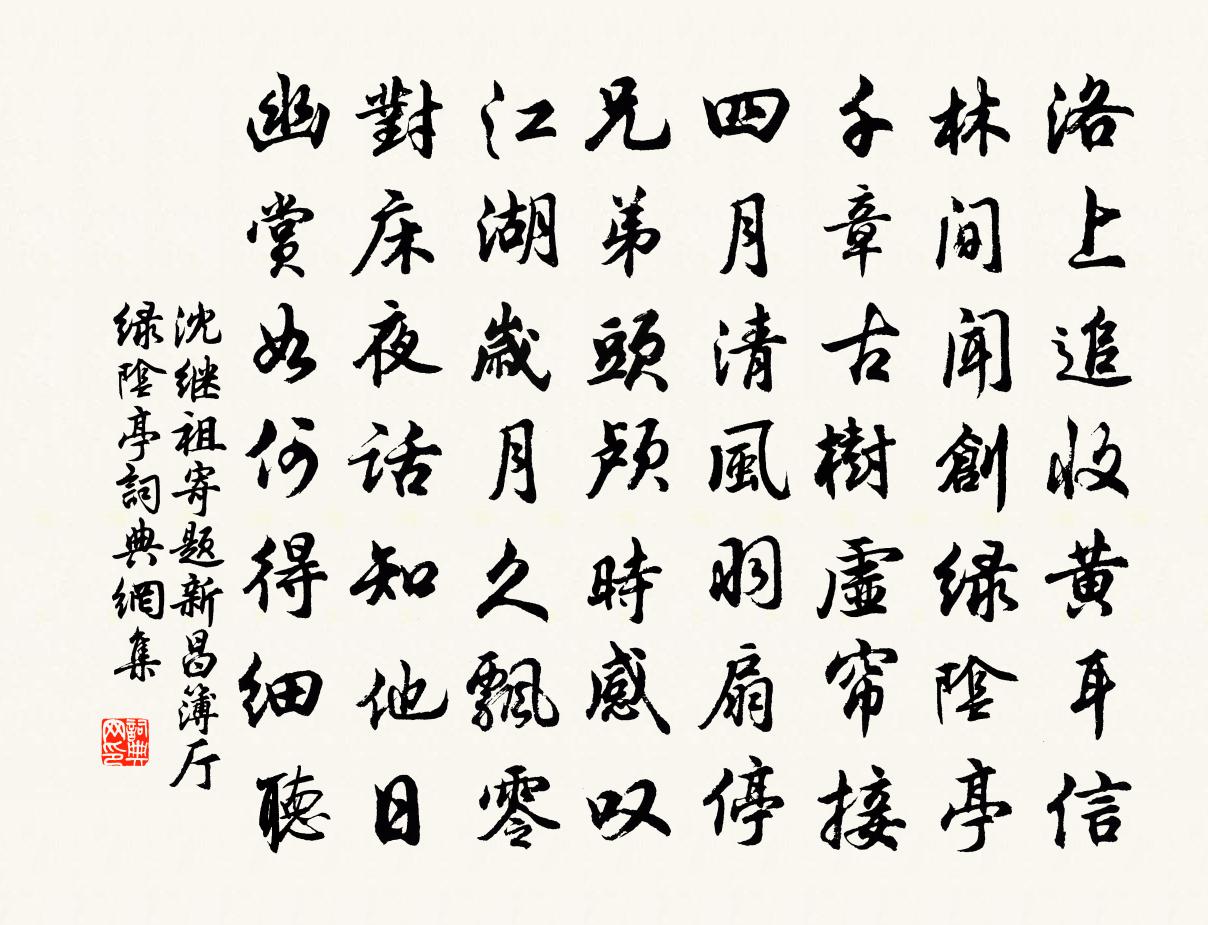 洛上追收黄耳信
林间聞創緑陰亭
千章古樹虚帘接
四月清風羽扇停
兄弟頭顱時感叹
江湖歲月久飄零
對床夜話知他日
幽賞如何得細聽
沈继祖寄题新昌薄厅
緑陰亭詞典網集
詞典
网印